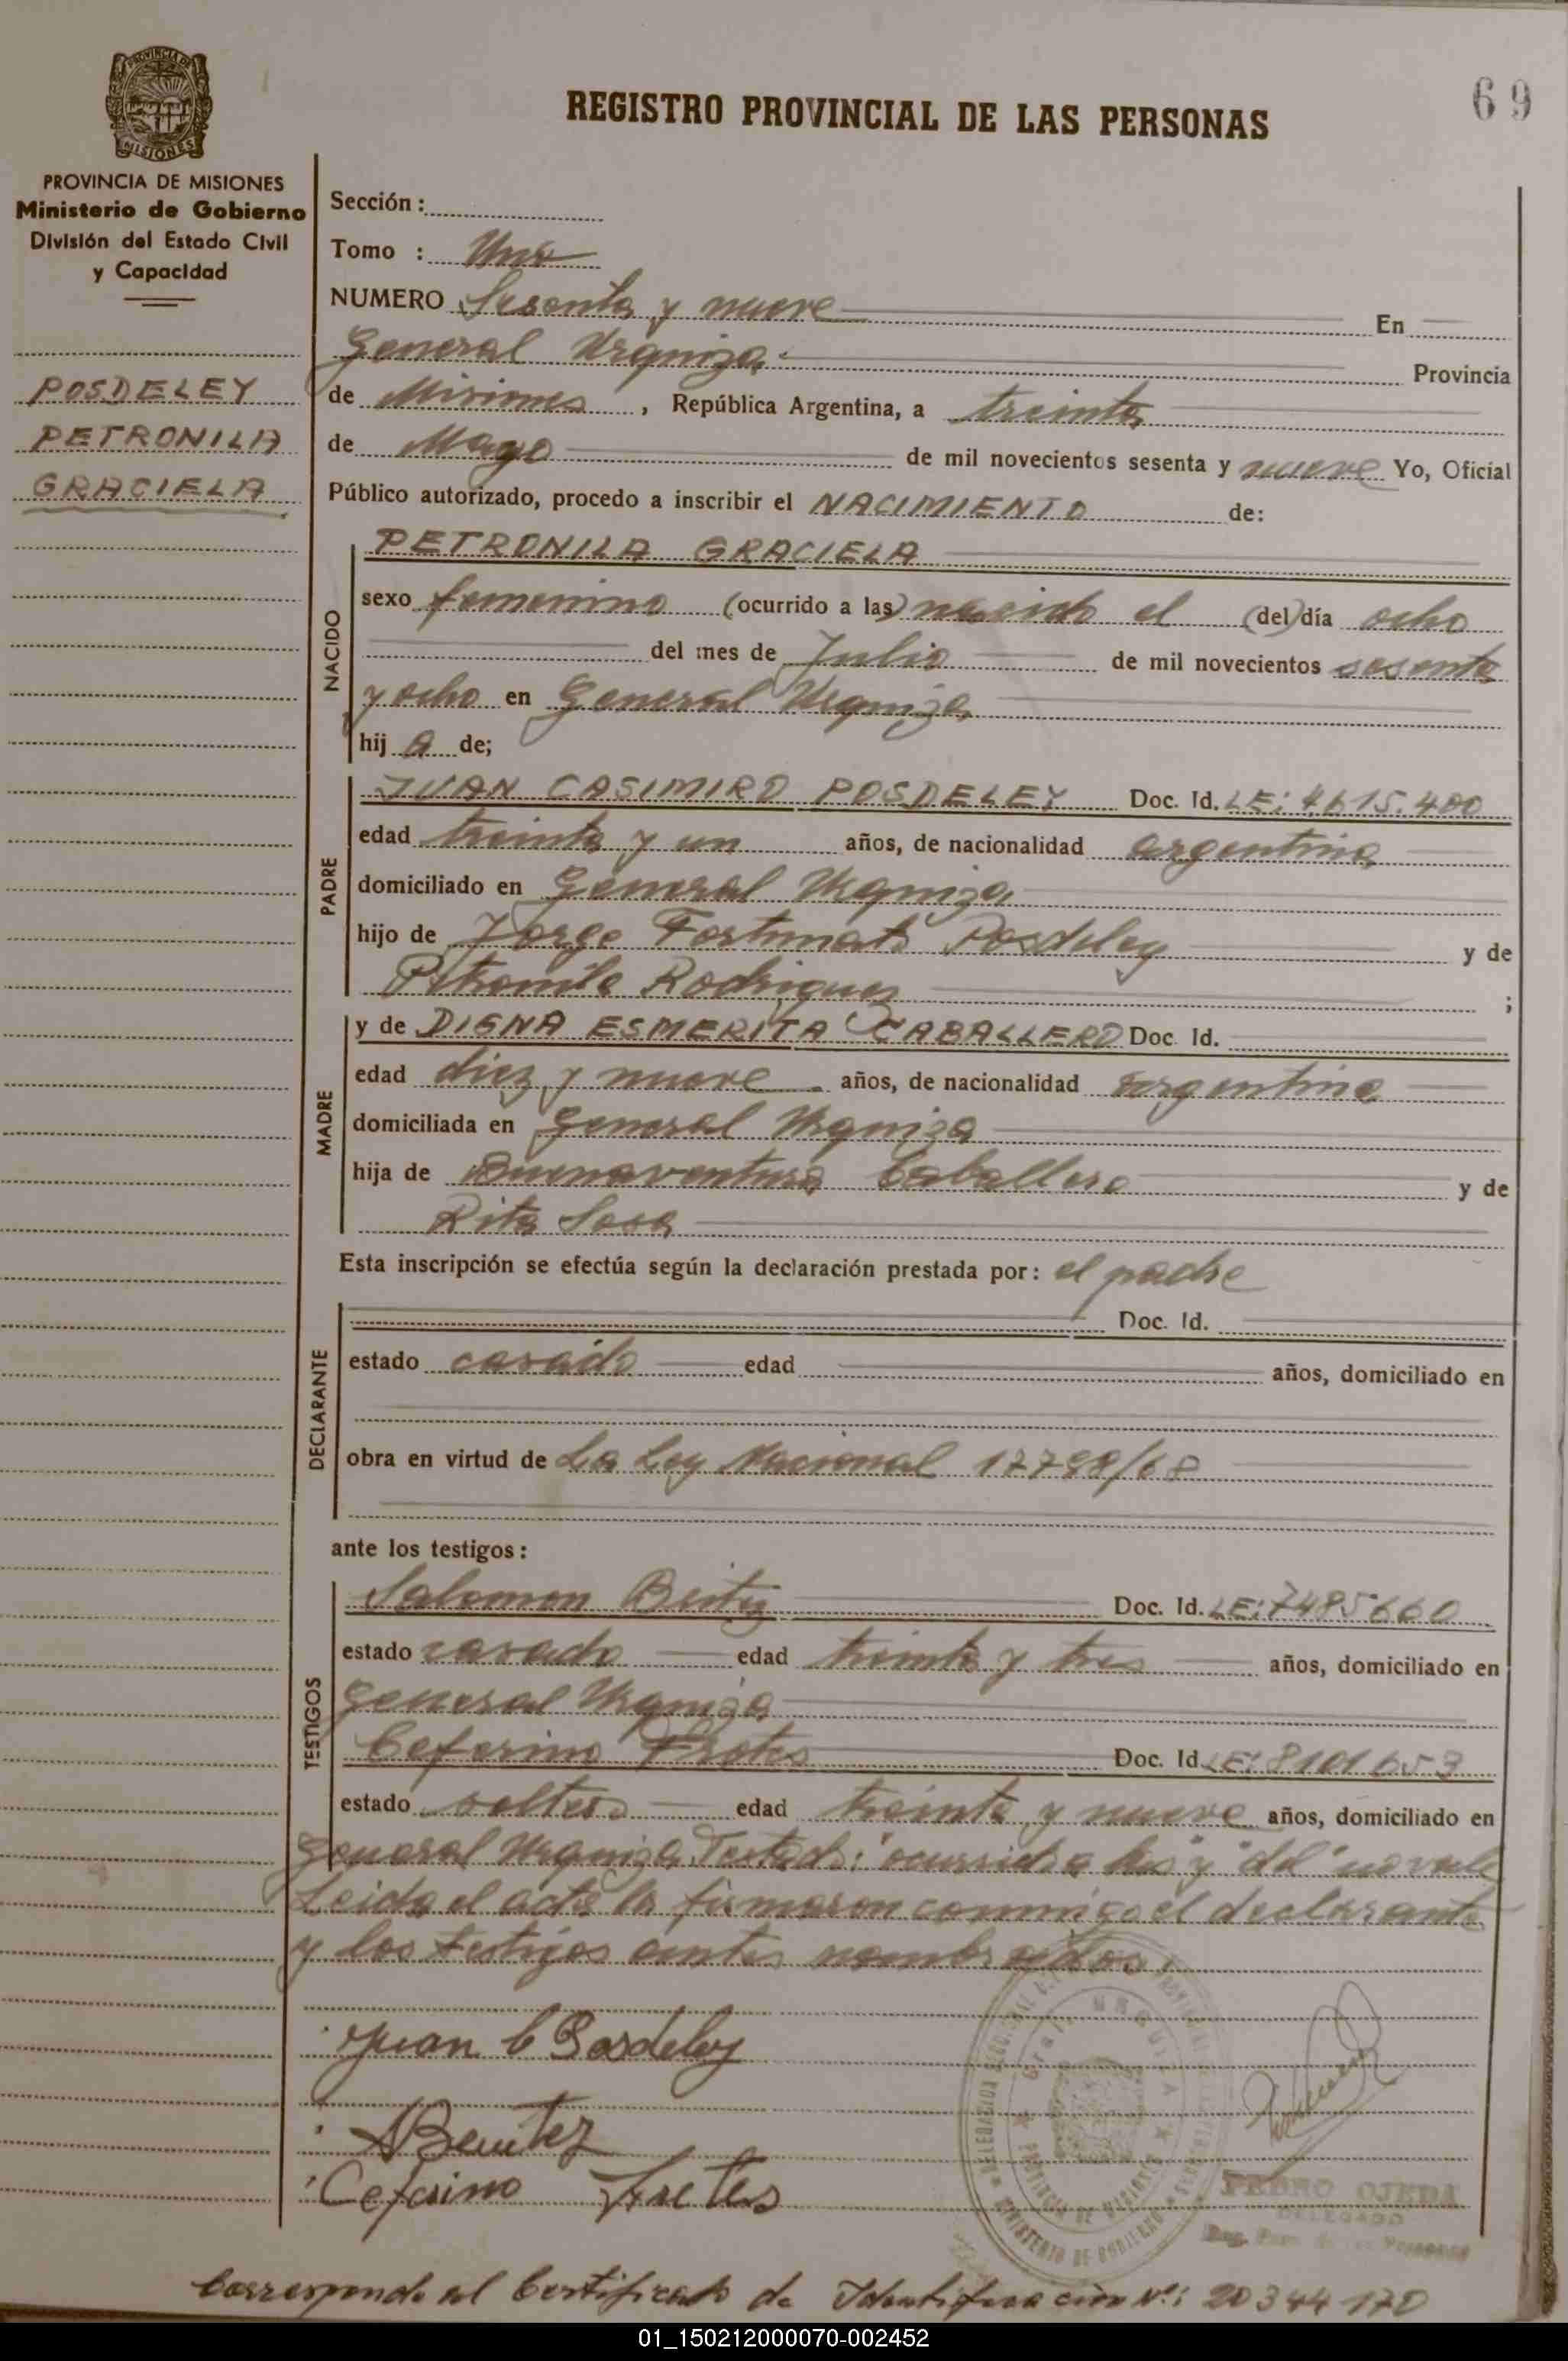 69
REGISTRO PROVINCIAL DE LAS PERSONAS
PROVINCIA DE
MISIONES
PROVINCIA DE MISIONES
Ministerio de Gobierno
División del Estado Civil
y Capacidad
POSDELEY
PETRONILA
GRACIELA
Sección :
Tomo : Uno
NUMERO Sesenta y nueve En
General Urquiza Provincia
de Misiones , República Argentina, a treinta
de Mayo de mil novecientos sesenta y nueve Yo, Oficial
Público autorizado, procedo a inscribir el NACIMIENTO de:
NACIDO
PETRONILA GRACIELA
sexo femenino (ocurrido a las) nacido el (del) día ocho
del mes de Julio de mil novecientos sesenta
y ocho en General Urquiza
hij A de;
PADRE
JUAN CASIMIRO POSDELEY Doc. Id. LE: 7.615.400
edad treinta y un años, de nacionalidad argentina
domiciliado en General Urquiza
hijo de Jorge Fortunato Posdeley y de
Petronila Rodrigues ;
MADRE
y de DIGNA ESMERITA CABALLERO Doc Id.
edad diez y nueve años, de nacionalidad argentina
domiciliada en General Urquiza
hija de Buenaventura Caballero y de
Rita Sosa
Esta inscripción se efectúa según la declaración prestada por: el padre
DECLARANTE
Doc. Id.
estado casado edad años, domiciliado en
obra en virtud de La Ley Nacional 17798/68
ante los testigos:
TESTIGOS
Salomon Doc. Id. LE: 7485660
estado casado edad treinta y tres años, domiciliado en
General Urquiza
Ceferino Fretes Doc. Id LE: 8101653
estado soltero edad treinta y nueve años, domiciliado en
General Urquiza Testado: "ocurrido a las" y "del" no vale
Leida el acta la firmaron conmigo el declarante
y los testigos antes nombrados.
Juan C Posdeley
SBenitez
Ceferino Fretes
PROVINCIA DE MISIONES
MINISTERIO DE GOBIERNO
PEDRO OJEDA
DELEGADO
Corresponde al Certificado de Identificación Nº: 20344170
01_150212000070-002452